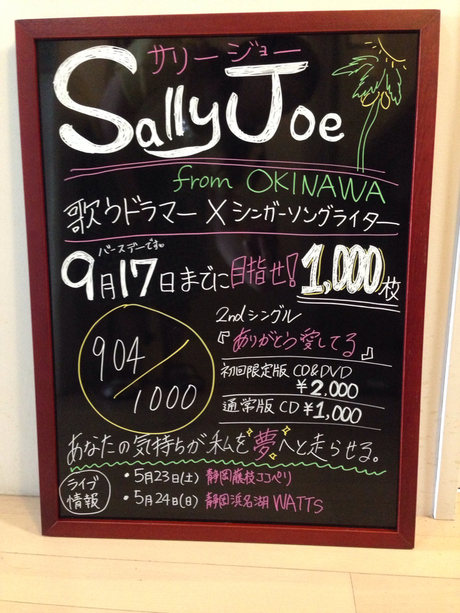 サリージョー
Sally Joe
from OKINAWA
歌うドラマー × シンガーソングライター
バースデーです。
9月17日までに目指せ!1,000枚
904/1000
2ndシングル
『ありがとう愛してる』
初回限定版 CD&DVD
¥2,000
通常版 CD ¥1,000
あなたの気持ちが私を夢へと走らせる。
ライブ情報
・5月23日(土) 静岡藤枝ココペリ
・5月24日(日) 静岡浜名湖 WATTS